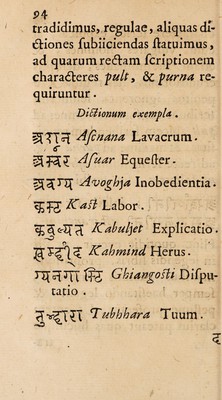 94
tradidimus, regulae, aliquas di-
ctiones subiiciendas statuimus,
ad quarum rectam scriptionem
characteres pult, & purna re-
quiruntur.
Dictionum exempla.
Ascnana Lavacrum.
अस्वर Asuar Equester.
अवग्य Avoghja Inobedientia.
कस्ट Kast Labor.
कबुल्यत Kabuljet Explicatio.
खम्हीद Kahmind Herus.
ग्यनगास्टि Ghiangosti Dispu-
tatio.
तुम्हारा Tubhhara Tuum.